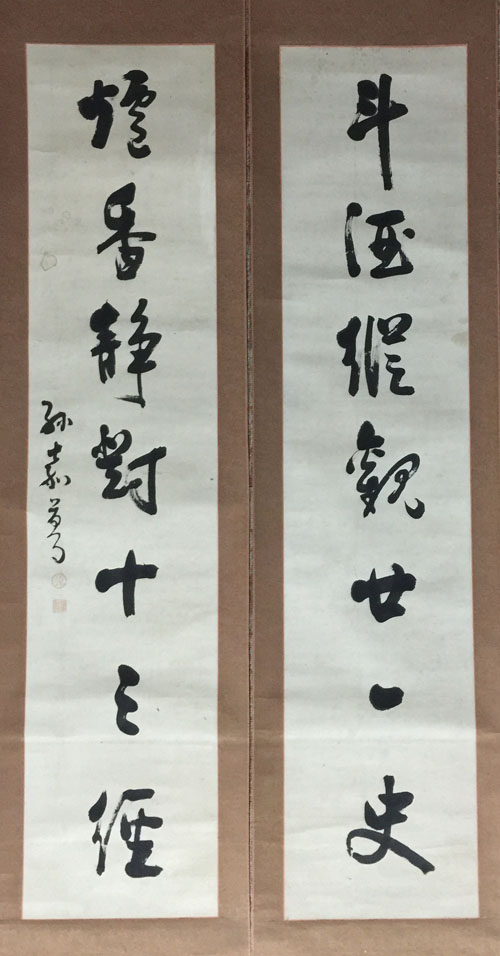 斗酒縱觀廿一史
爐香靜對十三經
孫嘉